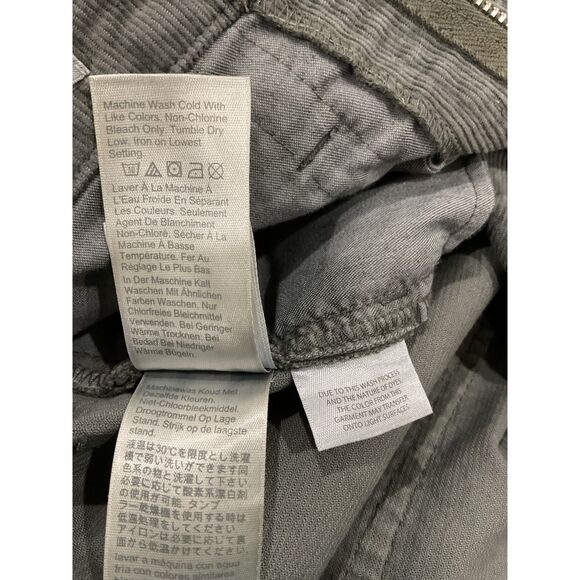 Machine Wash Cold With
Like Colors, Non-Chlorine
Bleach Only, Tumble Dry
Low, Iron on Lowest
Setting
Laver À La Machine À
L'Eau Froide En Séparant
Les Couleurs. Seulement
Agent De Blanchiment
Non-Chloré. Sécher À La
Machine À Basse
Température. Fer Au
Réglage Le Plus Bas.
In Der Maschine Kalt
Waschen Mit Ähnlichen
Farben Waschen. Nur
Chlorfreies Bleichmittel
Verwenden. Bei Geringer
Wärme Trocknen. Bei
Bedarf Bei Niedriger
Wärme Bügeln.
Machinewas Koud Met
Dezelfde Kleuren.
Niet-Chloorbleekmiddel.
Droogtrommel Op Lage
Stand. Strijk op de laagste
stand.
液温は30℃を限度とし洗濯
機で弱い洗いができます同
色系の物と洗濯して下さい
必要に応じて酸素系漂白剤
の使用が可能。タンブ
ラー乾燥機を使用する時は
低温処理をしてください
アイロンは必要に応じて裏
面から低温でかけて下さい
lavar a máquina con agua
fría con colores similares
DUE TO THIS WASH PROCESS
AND THE NATURE OF DYES,
THE COLOR FROM THIS
GARMENT MAY TRANSFER
ONTO LIGHT SURFACES